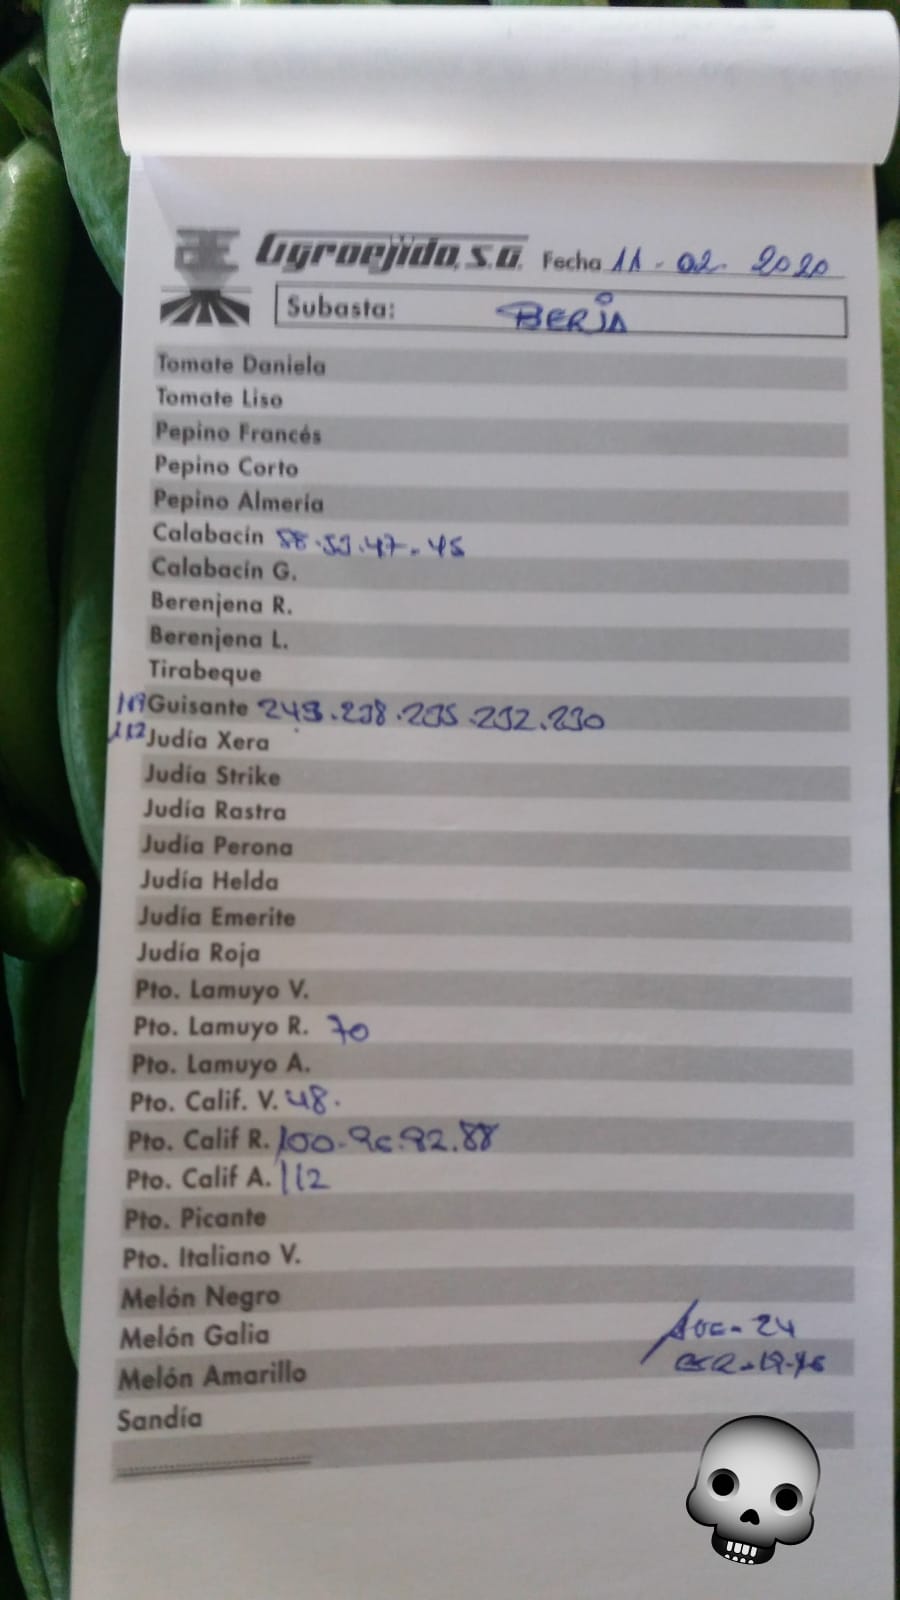 Agroejido, S.A. Fecha 11-02-2020
Subasta: BERJA
Tomate Daniela
Tomate Liso
Pepino Francés
Pepino Corto
Pepino Almería
Calabacín 58.53.47-45
Calabacín G.
Berenjena R.
Berenjena L.
Tirabeque
Guisante 249.238.235.232.230
Judía Xera
Judía Strike
Judía Rastra
Judía Perona
Judía Helda
Judía Emerite
Judía Roja
Pto. Lamuyo V.
Pto. Lamuyo R. 70
Pto. Lamuyo A.
Pto. Calif. V. 48.
Pto. Calif R. 100-96.92.88
Pto. Calif A. 112
Pto. Picante
Pto. Italiano V.
Melón Negro
Melón Galia
24
Melón Amarillo
Sandía